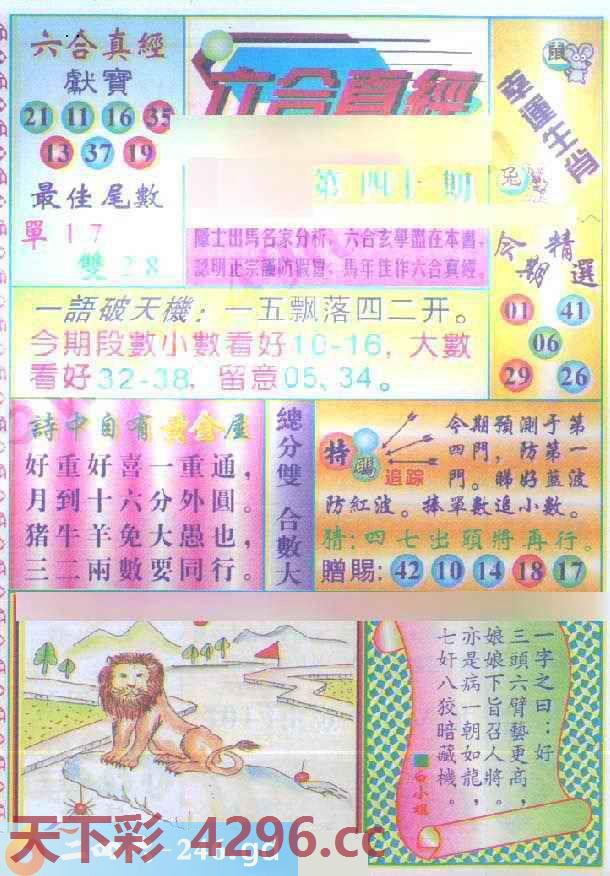 六合真經
獻寶
21 11 16 35
13 37 19
最佳尾數
單 1 7
雙 2 8
六合真經
第四十期
隱士出馬名家分析，六合玄學盡在本書，
認明正宗謹防假冒，馬年佳作六合真經。
鼠
幸運生肖
兔
今期精選
01 41
06
29 26
一語破天機：一五飘落四二开。
今期段數小數看好10-16，大數
看好32-38，留意05、34。
詩中自有黃金屋
好重好喜一重通，
月到十六分外圓。
猪牛羊兔大愚也，
三二兩數要同行。
總分雙 合數大
特碼
追踪
今期預測于第
四門，防第一
門。睇好藍波
防紅波。捧單數追小數。
猜：四七出頭將再行。
贈賜：42 10 14 18 17
一字之曰：好
三頭六臂藝更高，
娘娘下旨召人將。
亦是病一朝如龍，
七奸八狡暗藏機。
白小姐
天下彩 4296.cc